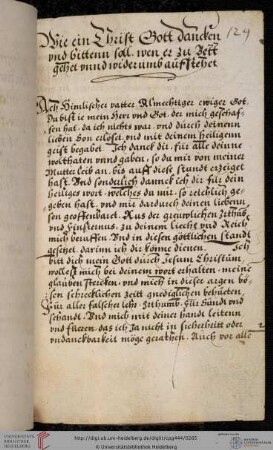 129
Wie ein Christ Gott dancken
vnd bitten soll, wen er zu Bett
gehet vnnd widerumb auffstehet
Ach Himlischer vatter Almechtiger ewiger Got.
Du bist ie mein Herr vnd Got, der mich geschaf-
fen hat, da ich nichts war, vnd durch deinenn
lieben Son erlöset, vnd mit deinem heiligenn
geist begabet. Ich danck dir, für alle deinne
wolthaten vnnd gaben, so du mir von meiner
Mutter leib an, bis auff diese stundt erzeiget
hast. Vnd sonderlich danncke ich dir für dein
heiliges wort, welches du mir, so reichlich ge-
geben hast, vnd mir dardurch deinen liebenn
son geoffenbaret. Aus der grewlichen
vnd Finsternus, zu deinem liecht vnd Reich
mich beruffen. Vnd in diesen göttlichen standt
gesetzet, darinn ich dir könne dienen. Ich
bitt dich mein Gott durch Jesum Christum,
wollest mich bei deinem wort erhalten, meine
glauben stercken, vnd mich in dieser argen bö-
sen schrecklichen zeitt gnediglichen behüeten,
Für aller falscher lehr, Irthumb, für Sündt vnd
schandt. Vnd mich mit deiner handt leitenn
vnd füeren, das ich Ja nicht in sicherheitt oder
vndanckbarkeit möge gerathen. Auch vor alle
UNIVERSITÄTS-
BIBLIOTHEK
HEIDELBERG
http://digi.ub.uni-heidelberg.de/diglit/cpg444/0265
© Universitätsbibliothek Heidelberg